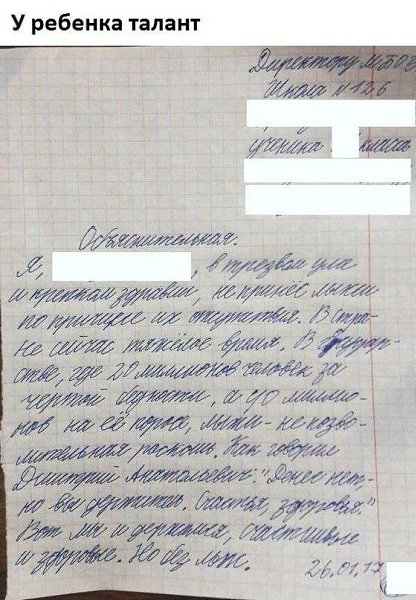 У ребенка талант
Директору МБОУ
Школа № 126
ученика класса
Объяснительная.
Я, , в трезвом уме
и крепком здравии, не принёс лыжи
по причине их отсутствия. В стра-
не сейчас тяжёлое время. В государ-
стве, где 20 миллионов человек за
чертой бедности, а 90 миллио-
нов на её пороге, лыжи - непозво-
лительная роскошь. Как говорил
Дмитрий Анатольевич: "Денег нет,
но вы держитесь. Счастья, здоровья."
Вот мы и держимся, счастливые
и здоровые. Но без лыж.
26.01.17